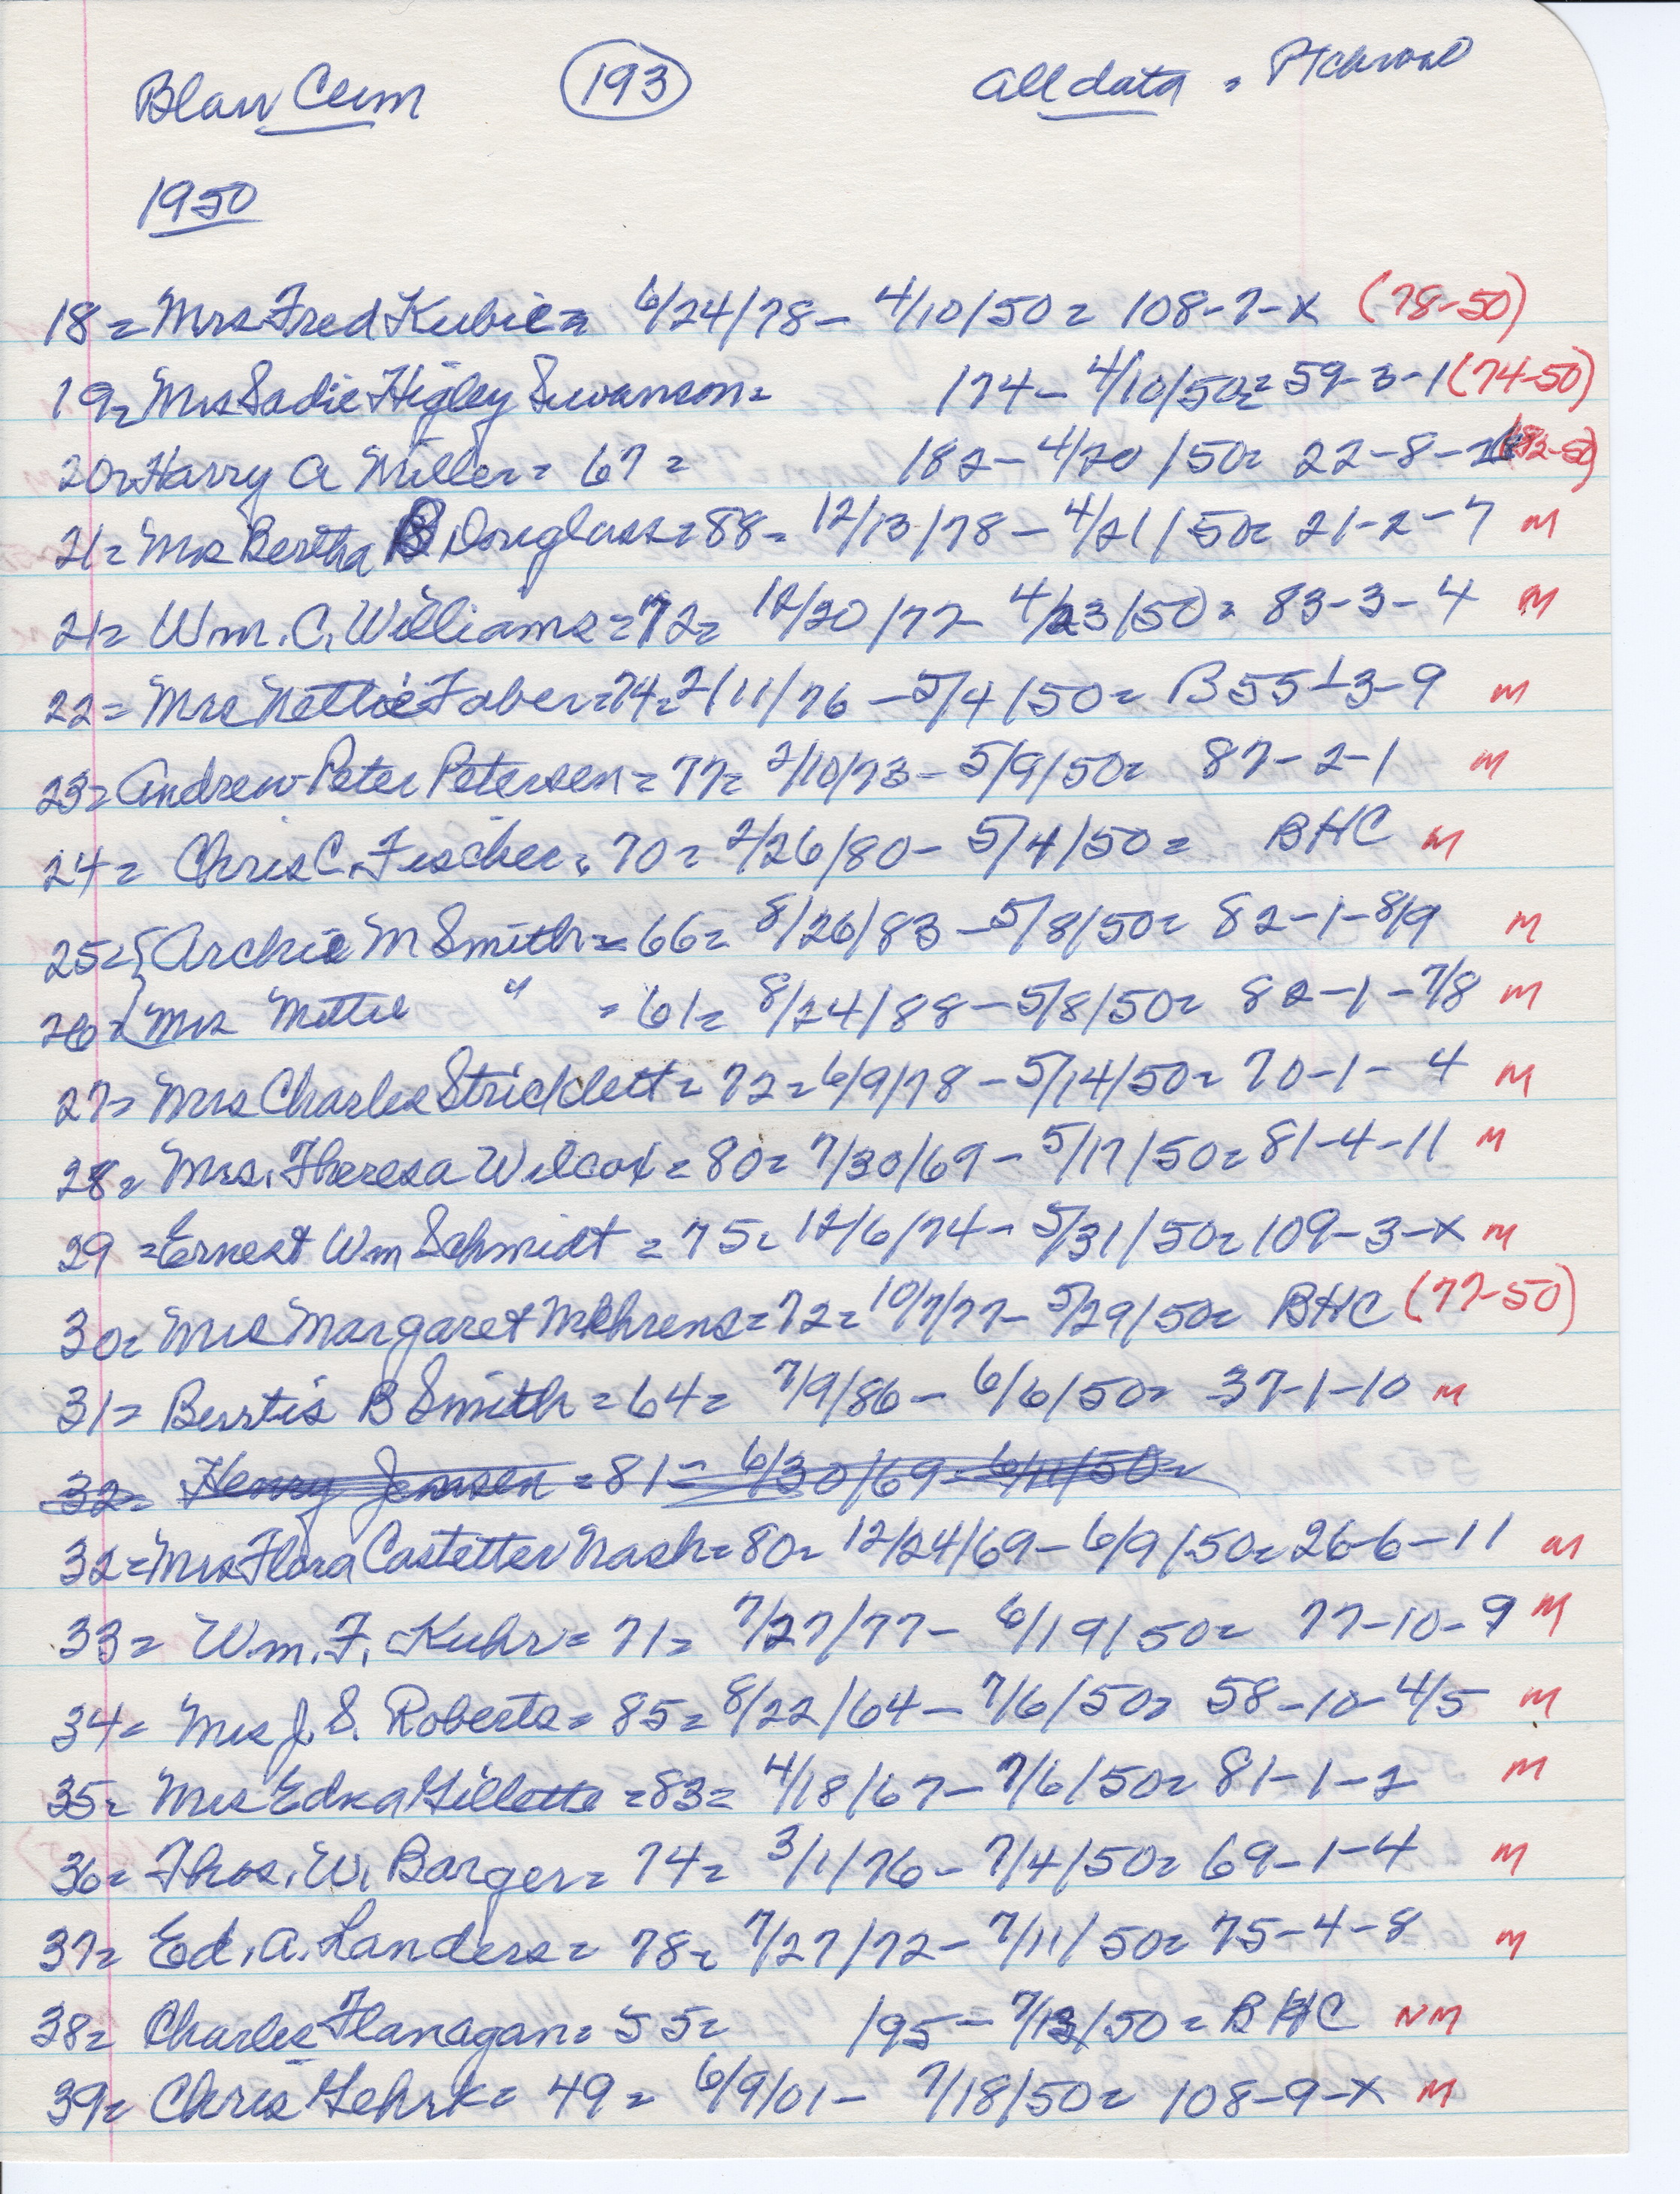 Blair Cem (193) All data =
1950
18 = Mrs Fred Kubie = 6/24/78 - 4/10/50 = 108-7-X (78-50)
19 = Mrs Sadie Higley Swanson = /74 - 4/10/50 = 59-3-1 (74-50)
20 = Harry A Miller = 67 = /82 - 4/20/50 = 22-8- (82-50)
21 = Mrs Bertha B Douglass = 88 = 12/13/78 - 4/21/50 = 21-2-7 M
21 = Wm. C. Williams = 72 = 12/30/77 - 4/23/50 = 83-3-4 M
22 = Mrs Nettie Faber = 74 = 2/11/76 - 5/4/50 = B55-3-9 M
23 = Andrew Peter Petersen = 77 = 2/10/73 - 5/9/50 = 87-2-1 M
24 = Chris C. Fischer = 70 = 2/26/80 - 5/4/50 = BHC M
25 = { Archie M Smith = 66 = 8/26/83 - 5/8/50 = 82-1-8/9 M
26 = { Mrs Mettie " = 61 = 8/24/88 - 5/8/50 = 82-1-7/8 M
27 = Mrs Charles Stricklett = 72 = 6/9/78 - 5/14/50 = 70-1-4 M
28 = Mrs. Theresa Wilcox = 80 = 7/30/69 - 5/17/50 = 81-4-11 M
29 = Ernest Wm Schmidt = 75 = 12/6/74 - 5/31/50 = 109-3-X M
30 = Mrs Margaret Mehrens = 72 = 10/7/77 - 5/29/50 = BHC (77-50)
31 = Berstis B Smith = 64 = 7/9/86 - 6/6/50 = 37-1-10 M
32 = Henry Jensen = 81 = 6/30/69 - 6/11/50 =
32 = Mrs Flora Castetter Nash = 80 = 12/24/69 - 6/9/50 = 26-6-11 M
33 = Wm. F. Kuhr = 71 = 7/27/77 - 6/19/50 = 77-10-9 M
34 = Mrs J. S. Roberts = 85 = 8/22/64 - 7/6/50 = 58-10-4/5 M
35 = Mrs Edna Gillette = 83 = 4/18/67 - 7/6/50 = 81-1-2 M
36 = Thos. W. Barger = 74 = 3/1/76 - 7/4/50 = 69-1-4 M
37 = Ed. A. Landers = 78 = 7/27/72 - 7/11/50 = 75-4-8 M
38 = Charles Flanagan = 55 = /95 - 7/13/50 = BHC NM
39 = Chris Gehrk = 49 = 6/9/01 - 7/18/50 = 108-9-X M